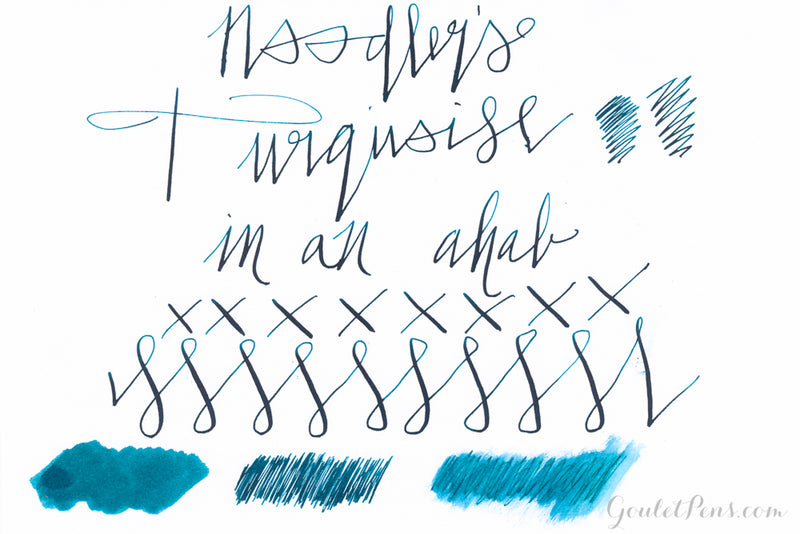 Noodler's
Turqusise
in an ahab
x x x x x x x x
GouletPens.com